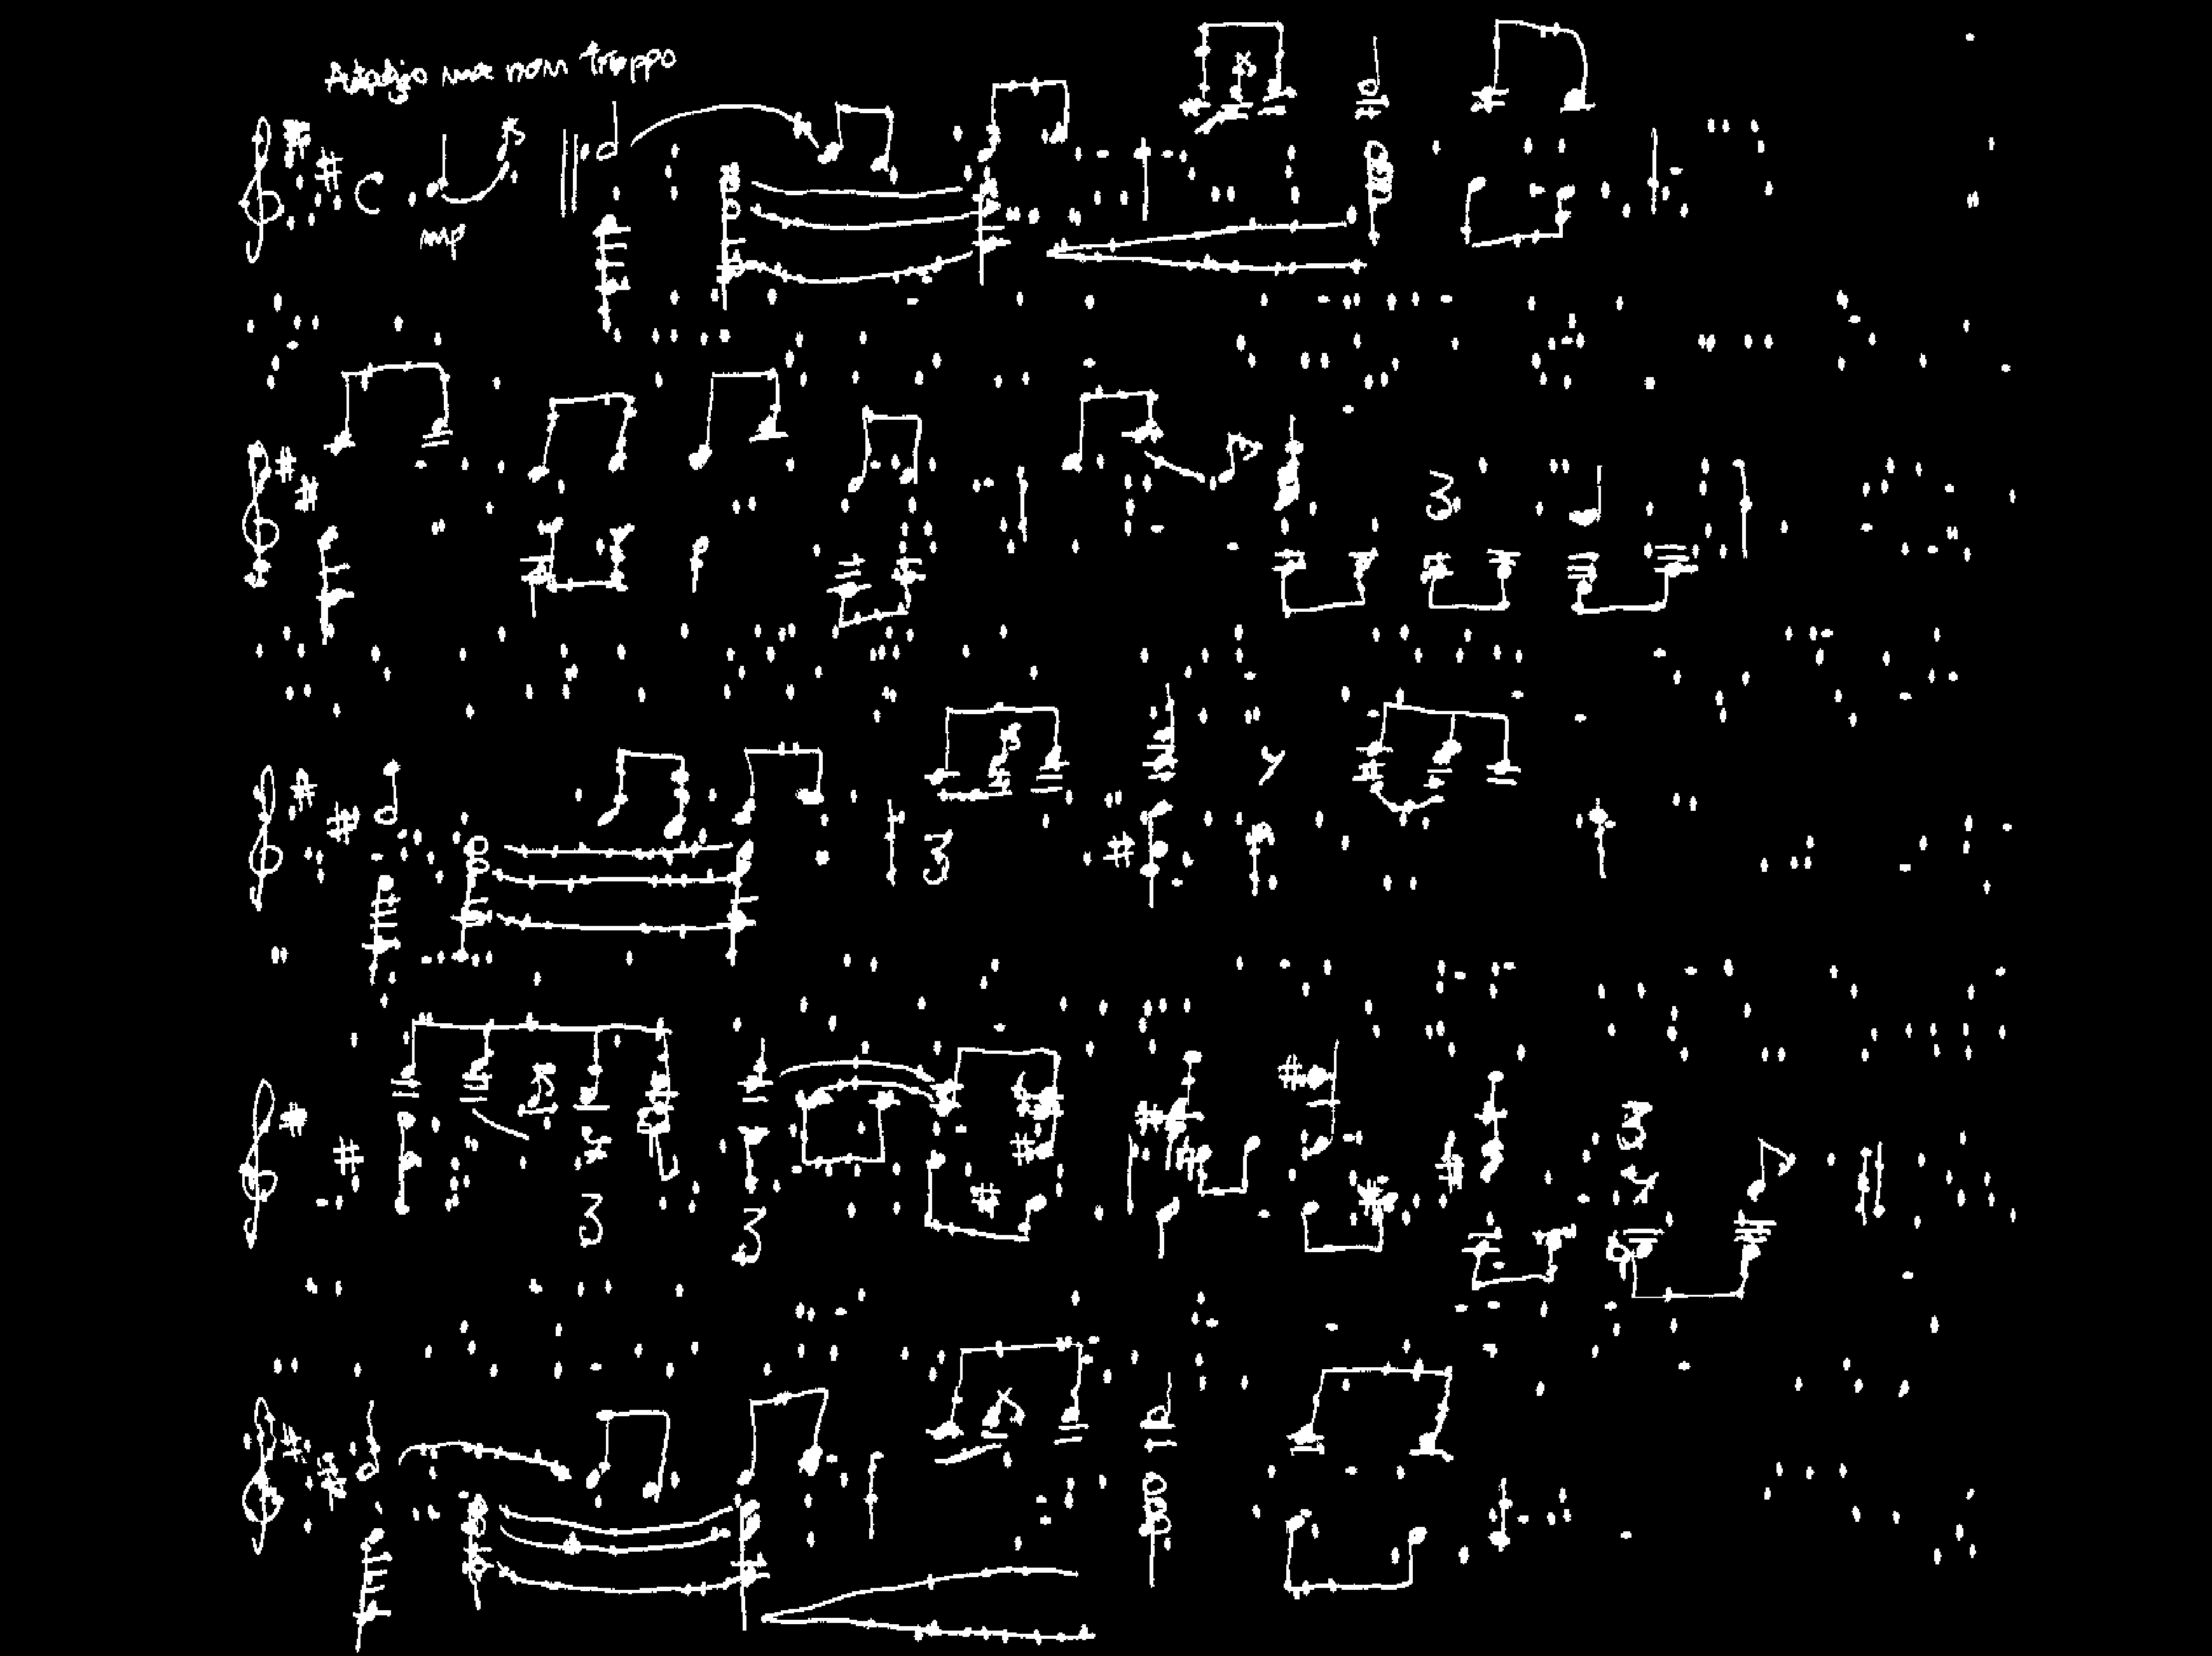 Adagio ma non troppo
C
mp
3
3
3
3
3